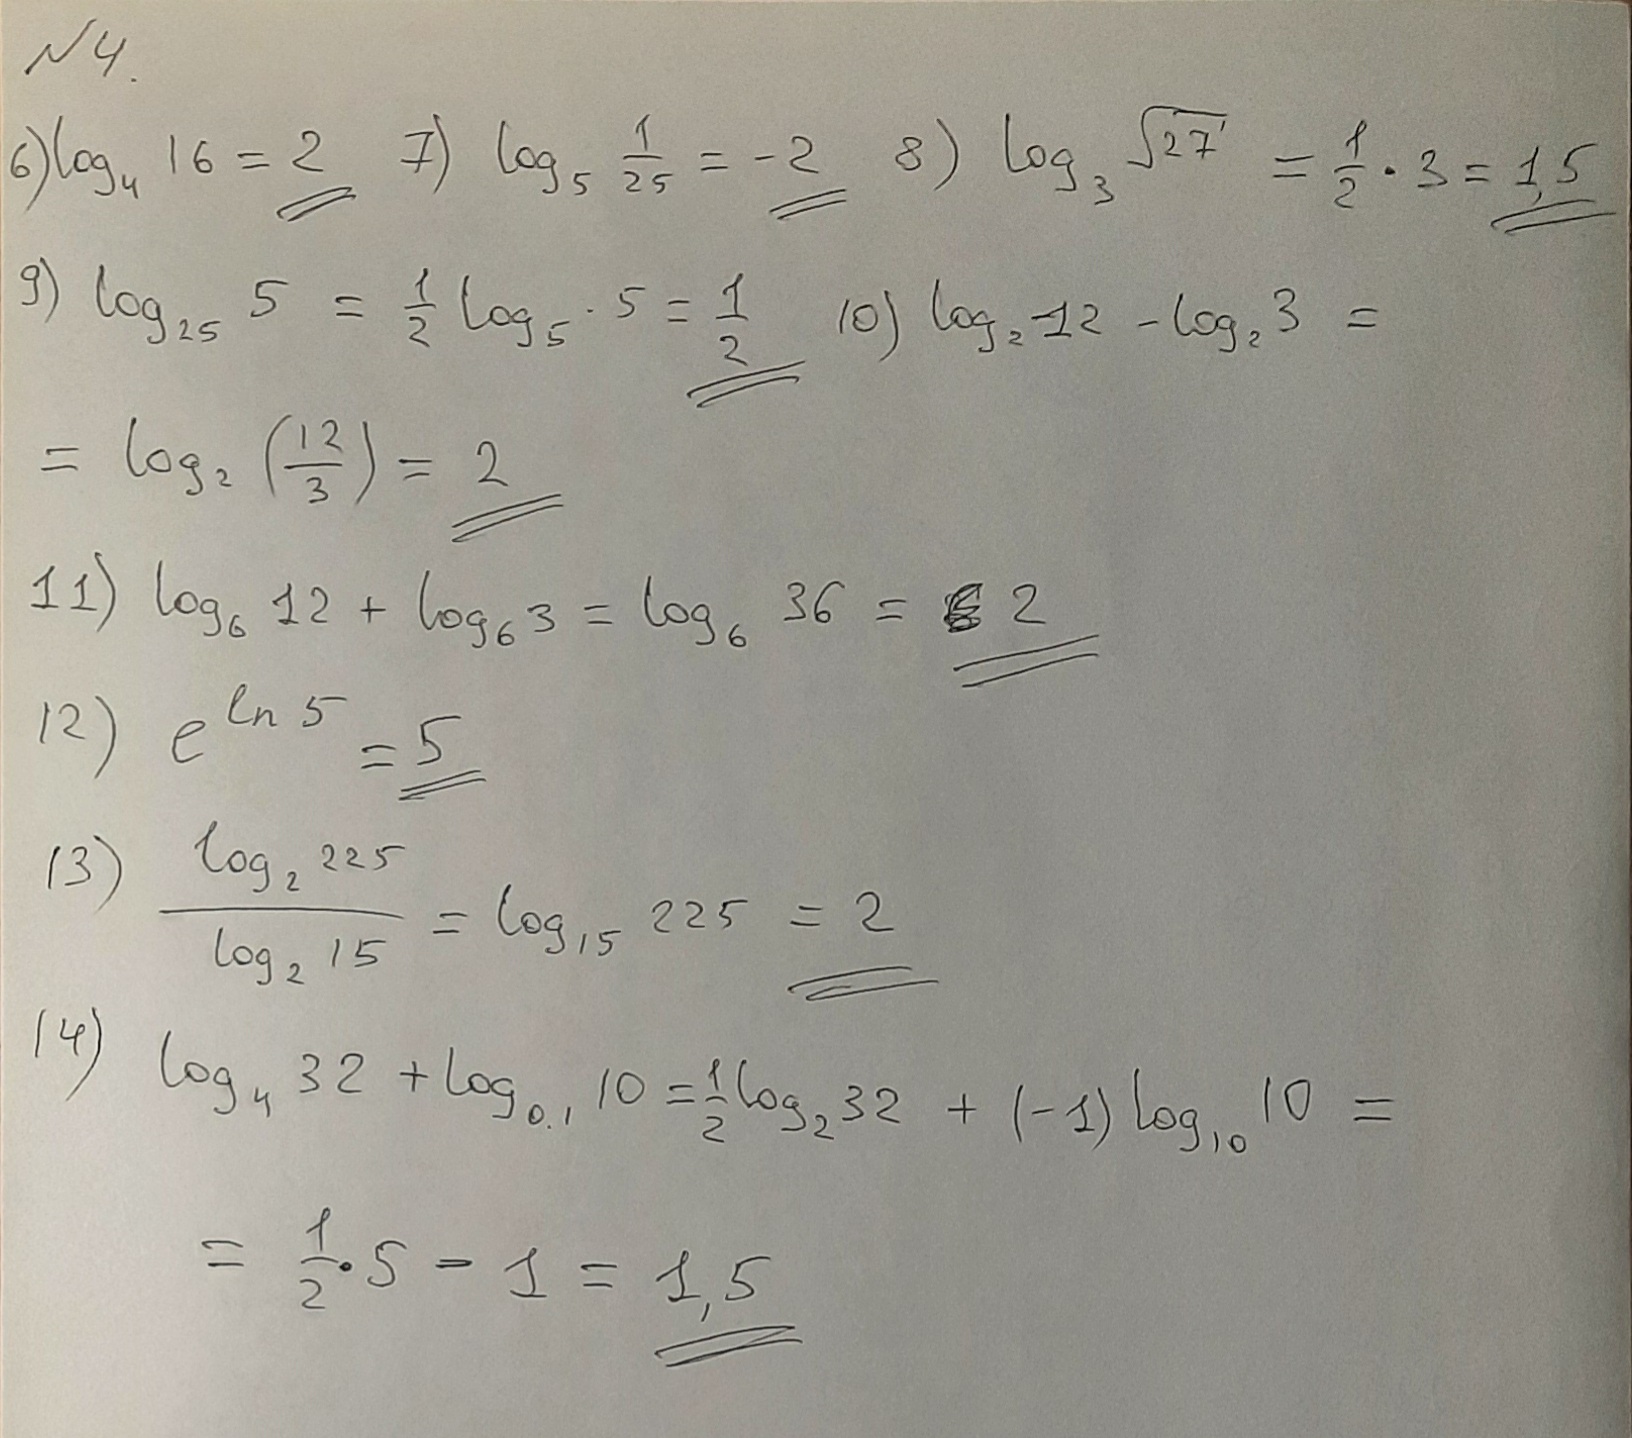 №4.
6) log₄ 16 = 2 7) log₅ 1/25 = -2 8) log₃ √27 = 1/2 · 3 = 1,5
9) log₂₅ 5 = 1/2 log₅ · 5 = 1/2 10) log₂ 12 - log₂ 3 =
= log₂ (12/3) = 2
11) log₆ 12 + log₆ 3 = log₆ 36 = 2
12) e^(ln 5) = 5
13) log₂ 225 / log₂ 15 = log₁₅ 225 = 2
14) log₄ 32 + log₀.₁ 10 = 1/2 log₂ 32 + (-1) log₁₀ 10 =
= 1/2 · 5 - 1 = 1,5